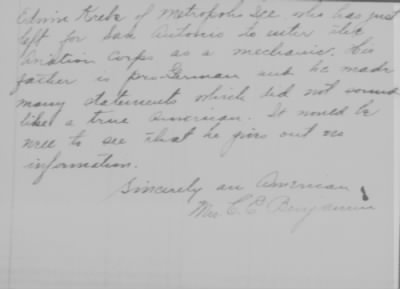 Edwin Krebs of Metropolis Ill. who has just
left for San Antonio to enter the
Aviation Corps as a mechanic. His
father is pro-German and he made
many statements which did not sound
like a true American. It would be
well to see that he gives out no
information.
Sincerely an American,
Mrs C. C. Benjamin